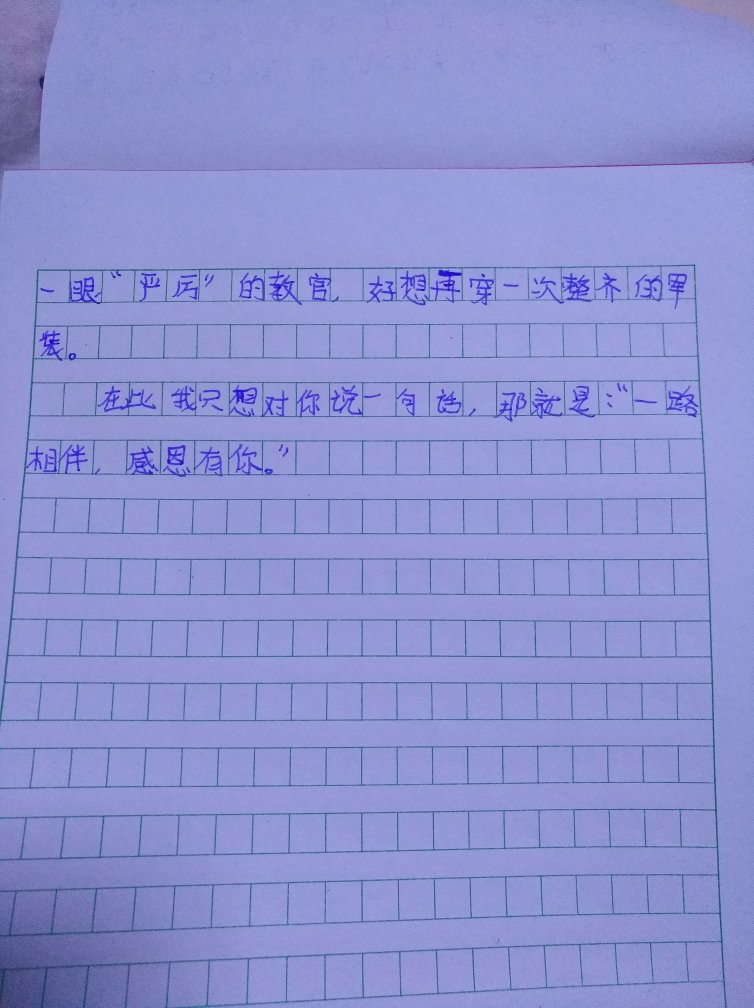 一眼“严厉”的教官，好想再穿一次整齐的军
装。
在此我只想对你说一句话，那就是：“一路
相伴，感恩有你。”